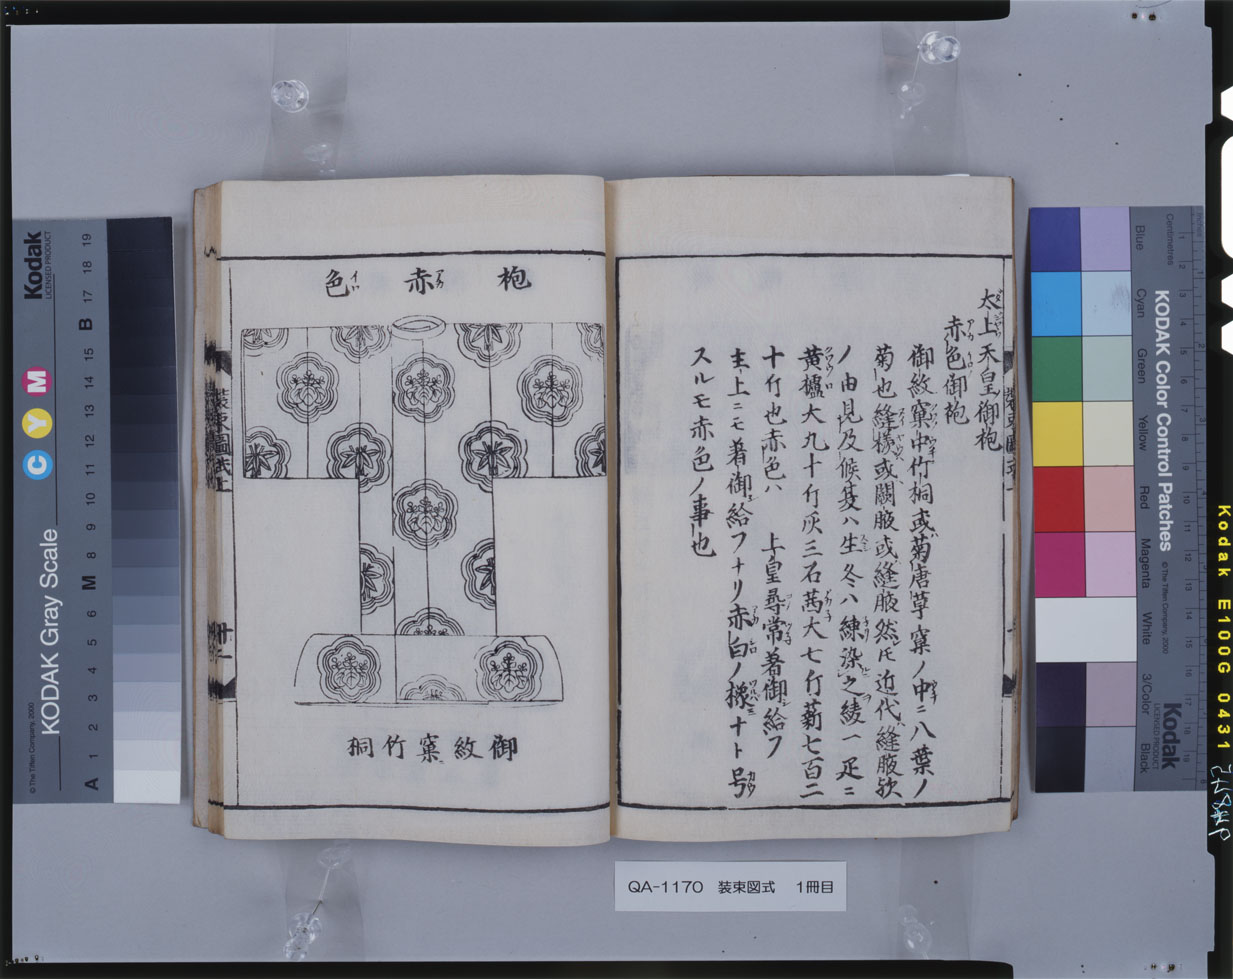 太上天皇御袍
赤色御袍
御紋窠中竹桐或菊唐草窠ノ中ニ八葉ノ
菊也縫様或闕腋或縫腋然ﾄﾓ近代縫腋欤
ノ由見及候夏ハ生冬ハ練染之綾一疋ニ
黄櫨大九十斤灰三石茜大七斤薪七百二
十斤也赤色ハ 上皇尋常着御給フ
主上ニモ着御給フナリ赤白ノ機ナト号
スルモ赤色ノ事也
袍 赤 色
御紋窠竹桐
装束圖式上
十二
QA-1170 装束図式 1冊目
Kodak
LICENSED PRODUCT
KODAK Gray Scale
© The Tiffen Company, 2000
C Y M
A 1 2 3 4 5 6 M 8 9 10 11 12 13 14 15 B 17 18 19
KODAK Color Control Patches
© The Tiffen Company, 2000
Kodak
LICENSED PRODUCT
Centimetres
Inches
Blue
Cyan
Green
Yellow
Red
Magenta
White
3/Color
Black
Kodak E100G 0431